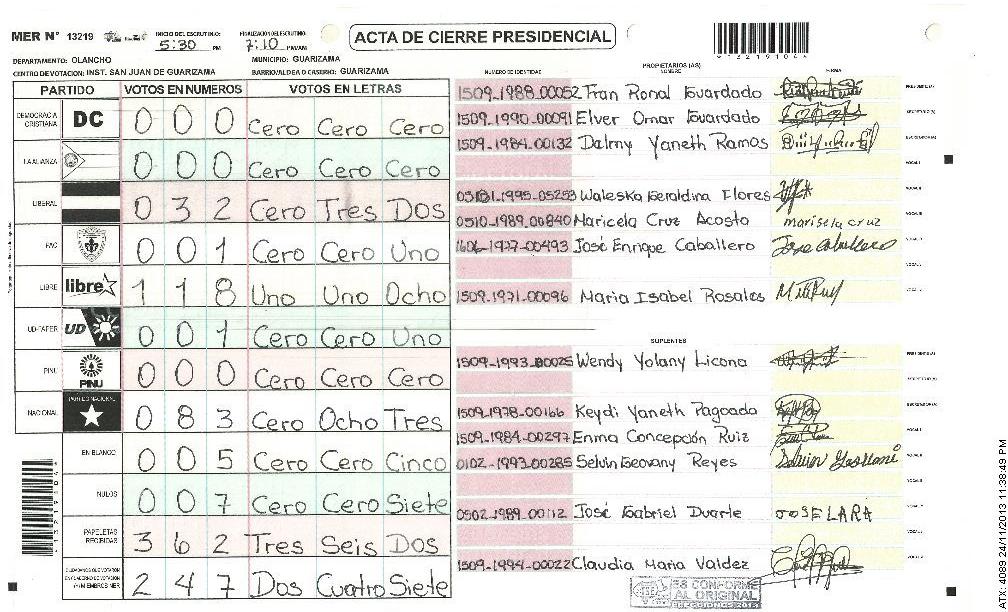 MER N° 13219 INICIO DEL ESCRUTINIO: 5:30 PM FINALIZACION DEL ESCRUTINIO: 7:10 PM/AM
ACTA DE CIERRE PRESIDENCIAL
DEPARTAMENTO: OLANCHO MUNICIPIO: GUARIZAMA
CENTRO DE VOTACION: INST. SAN JUAN DE GUARIZAMA BARRIO/ALDEA O CASERIO: GUARIZAMA
PARTIDO VOTOS EN NUMEROS VOTOS EN LETRAS
DEMOCRACIA CRISTIANA DC 0 0 0 Cero Cero Cero
LA ALIANZA 0 0 0 Cero Cero Cero
LIBERAL 0 3 2 Cero Tres Dos
PAC 0 0 1 Cero Cero Uno
LIBRE libre 1 1 8 Uno Uno Ocho
UD-FAPER UD 0 0 1 Cero Cero Uno
PINU PINU 0 0 0 Cero Cero Cero
NACIONAL PARTIDO NACIONAL 0 8 3 Cero Ocho Tres
EN BLANCO 0 0 5 Cero Cero Cinco
NULOS 0 0 7 Cero Cero Siete
PAPELETAS RECIBIDAS 3 6 2 Tres Seis Dos
CIUDADANOS QUE VOTARON EN CUADERNO DE VOTACION (+) MIEMBROS MER 2 4 7 Dos Cuatro Siete
PROPIETARIOS (AS)
NUMERO DE IDENTIDAD NOMBRE FIRMA
1509-1988-00052 Fran Ronal Guardado PRESIDENTE (A)
1509-1990-00091 Elver Omar Guardado SECRETARIO (A)
1509-1984-00132 Dalmy Yaneth Ramos ESCRUTADOR (A)
VOCAL I
Waleska Geraldina Flores VOCAL II
0510-1989-00840 Maricela Cruz Acosta marisela cruz
1606-1977-00493 José Enrique Caballero Jose Caballero
1509-1971-00096 Maria Isabel Rosales
SUPLENTES
1509-1993-00025 Wendy Yolany Licona PRESIDENTE (A)
SECRETARIO (A)
1509-1978-00166 Keydi Yaneth Pagoada ESCRUTADOR (A)
1509-1984-00297 Enma Concepción Ruiz VOCAL I
0102-1993-00285 Selvin Geovany Reyes VOCAL II
0502-1989-00112 José Gabriel Duarte JOSE LARA
1509-1994-00022 Claudia Maria Valdez
ES CONFORME AL ORIGINAL
ELECCIONES 2013
ATX: 4089 24/11/2013 11:38:49 PM